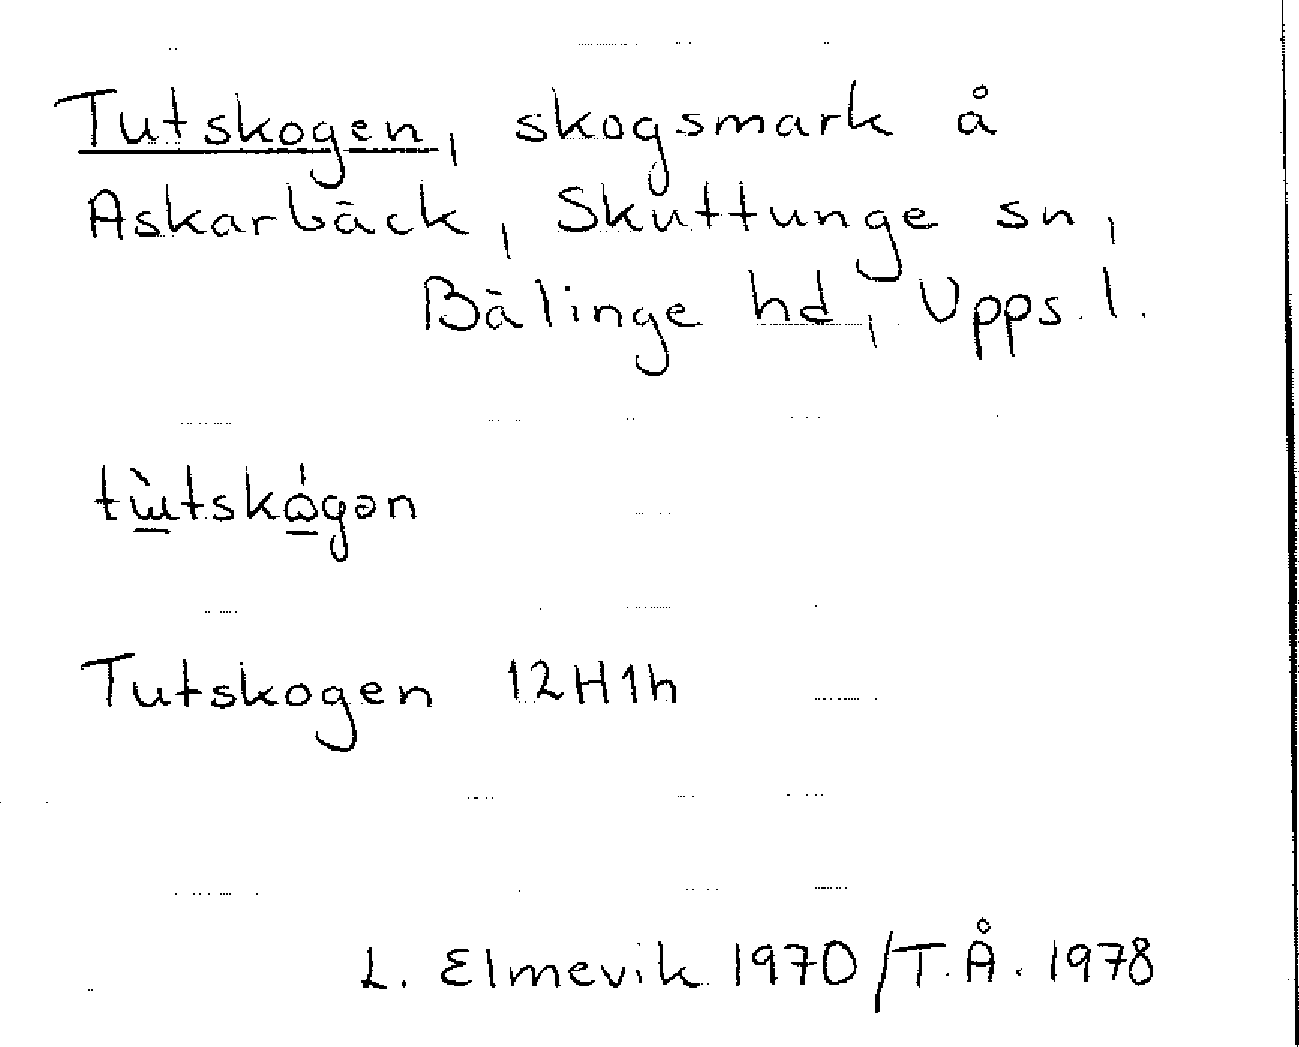 Tutskogen, skogsmark å
Askarbäck, Skuttunge sn,
Bälinge hd, Upps. l.
tɯ̲̀tskώ̲gən
Tutskogen 12H1h
L. Elmevik 1970/T.Å. 1978